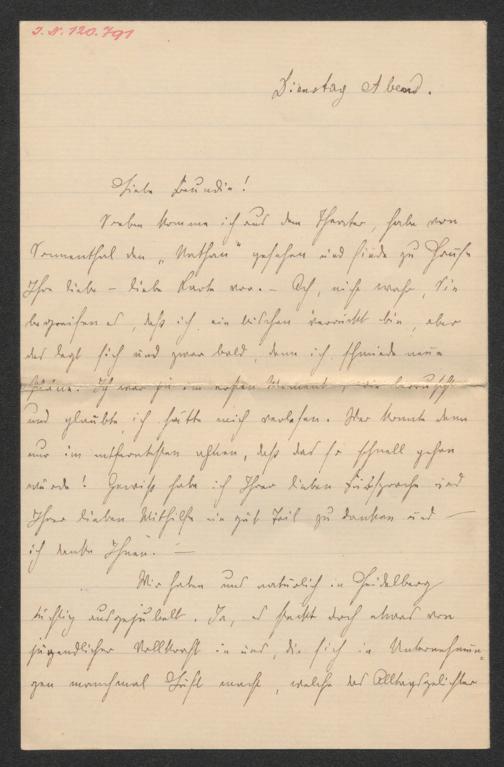 I.N. 120.791
Dienstag Abend.
Liebe Freundin!
Soeben komme ich aus dem Theater, habe von
Sonnenthal den „Nathan" gesehen und finde zu Hause
Ihre liebe – liebe Karte vor. – Ach, nicht wahr, Sie
begreifen es, daß ich ein bischen verrückt bin, aber
das legt sich und zwar bald, denn ich schmiede neue
Pläne. Ich war ja im ersten Moment, wie berauscht
und glaubte ich hätte mich verlesen. Wer konnte denn
nur im entferntesten ahnen, daß das so schnell gehen
würde! Gewiß habe ich Ihrer lieben Fürsprache und
Ihrer lieben Mithilfe ein gut Teil zu danken und –
ich danke Ihnen. –
Wir haben uns natürlich in Heidelberg
tüchtig ausgejubelt. Ja, es steckt doch etwas von
jugendlicher Vollkraft in uns, die sich in Unternehmun-
gen manchmal Luft macht, welche das Alltagsgelichter